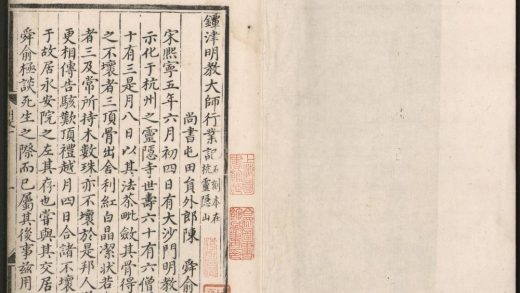 鐔津明教大師行業記 石刻本在杭靈隱山
尚書屯田員外郎陳 舜俞
宋熙寧五年六月初四日有大沙門明教
示化于杭州之靈隱寺世壽六十有六僧
十有三是月八日以其法荼毗斂其骨得
之不壞者三頂骨出舍利紅白晶潔狀若
者三及常所持木數珠亦不壞於是邦人
更相傳告駭歎頂禮越月四日合諸不壞
于故居永安院之左其存也嘗與其交居
舜俞極談死生之際而已屬其後事茲用